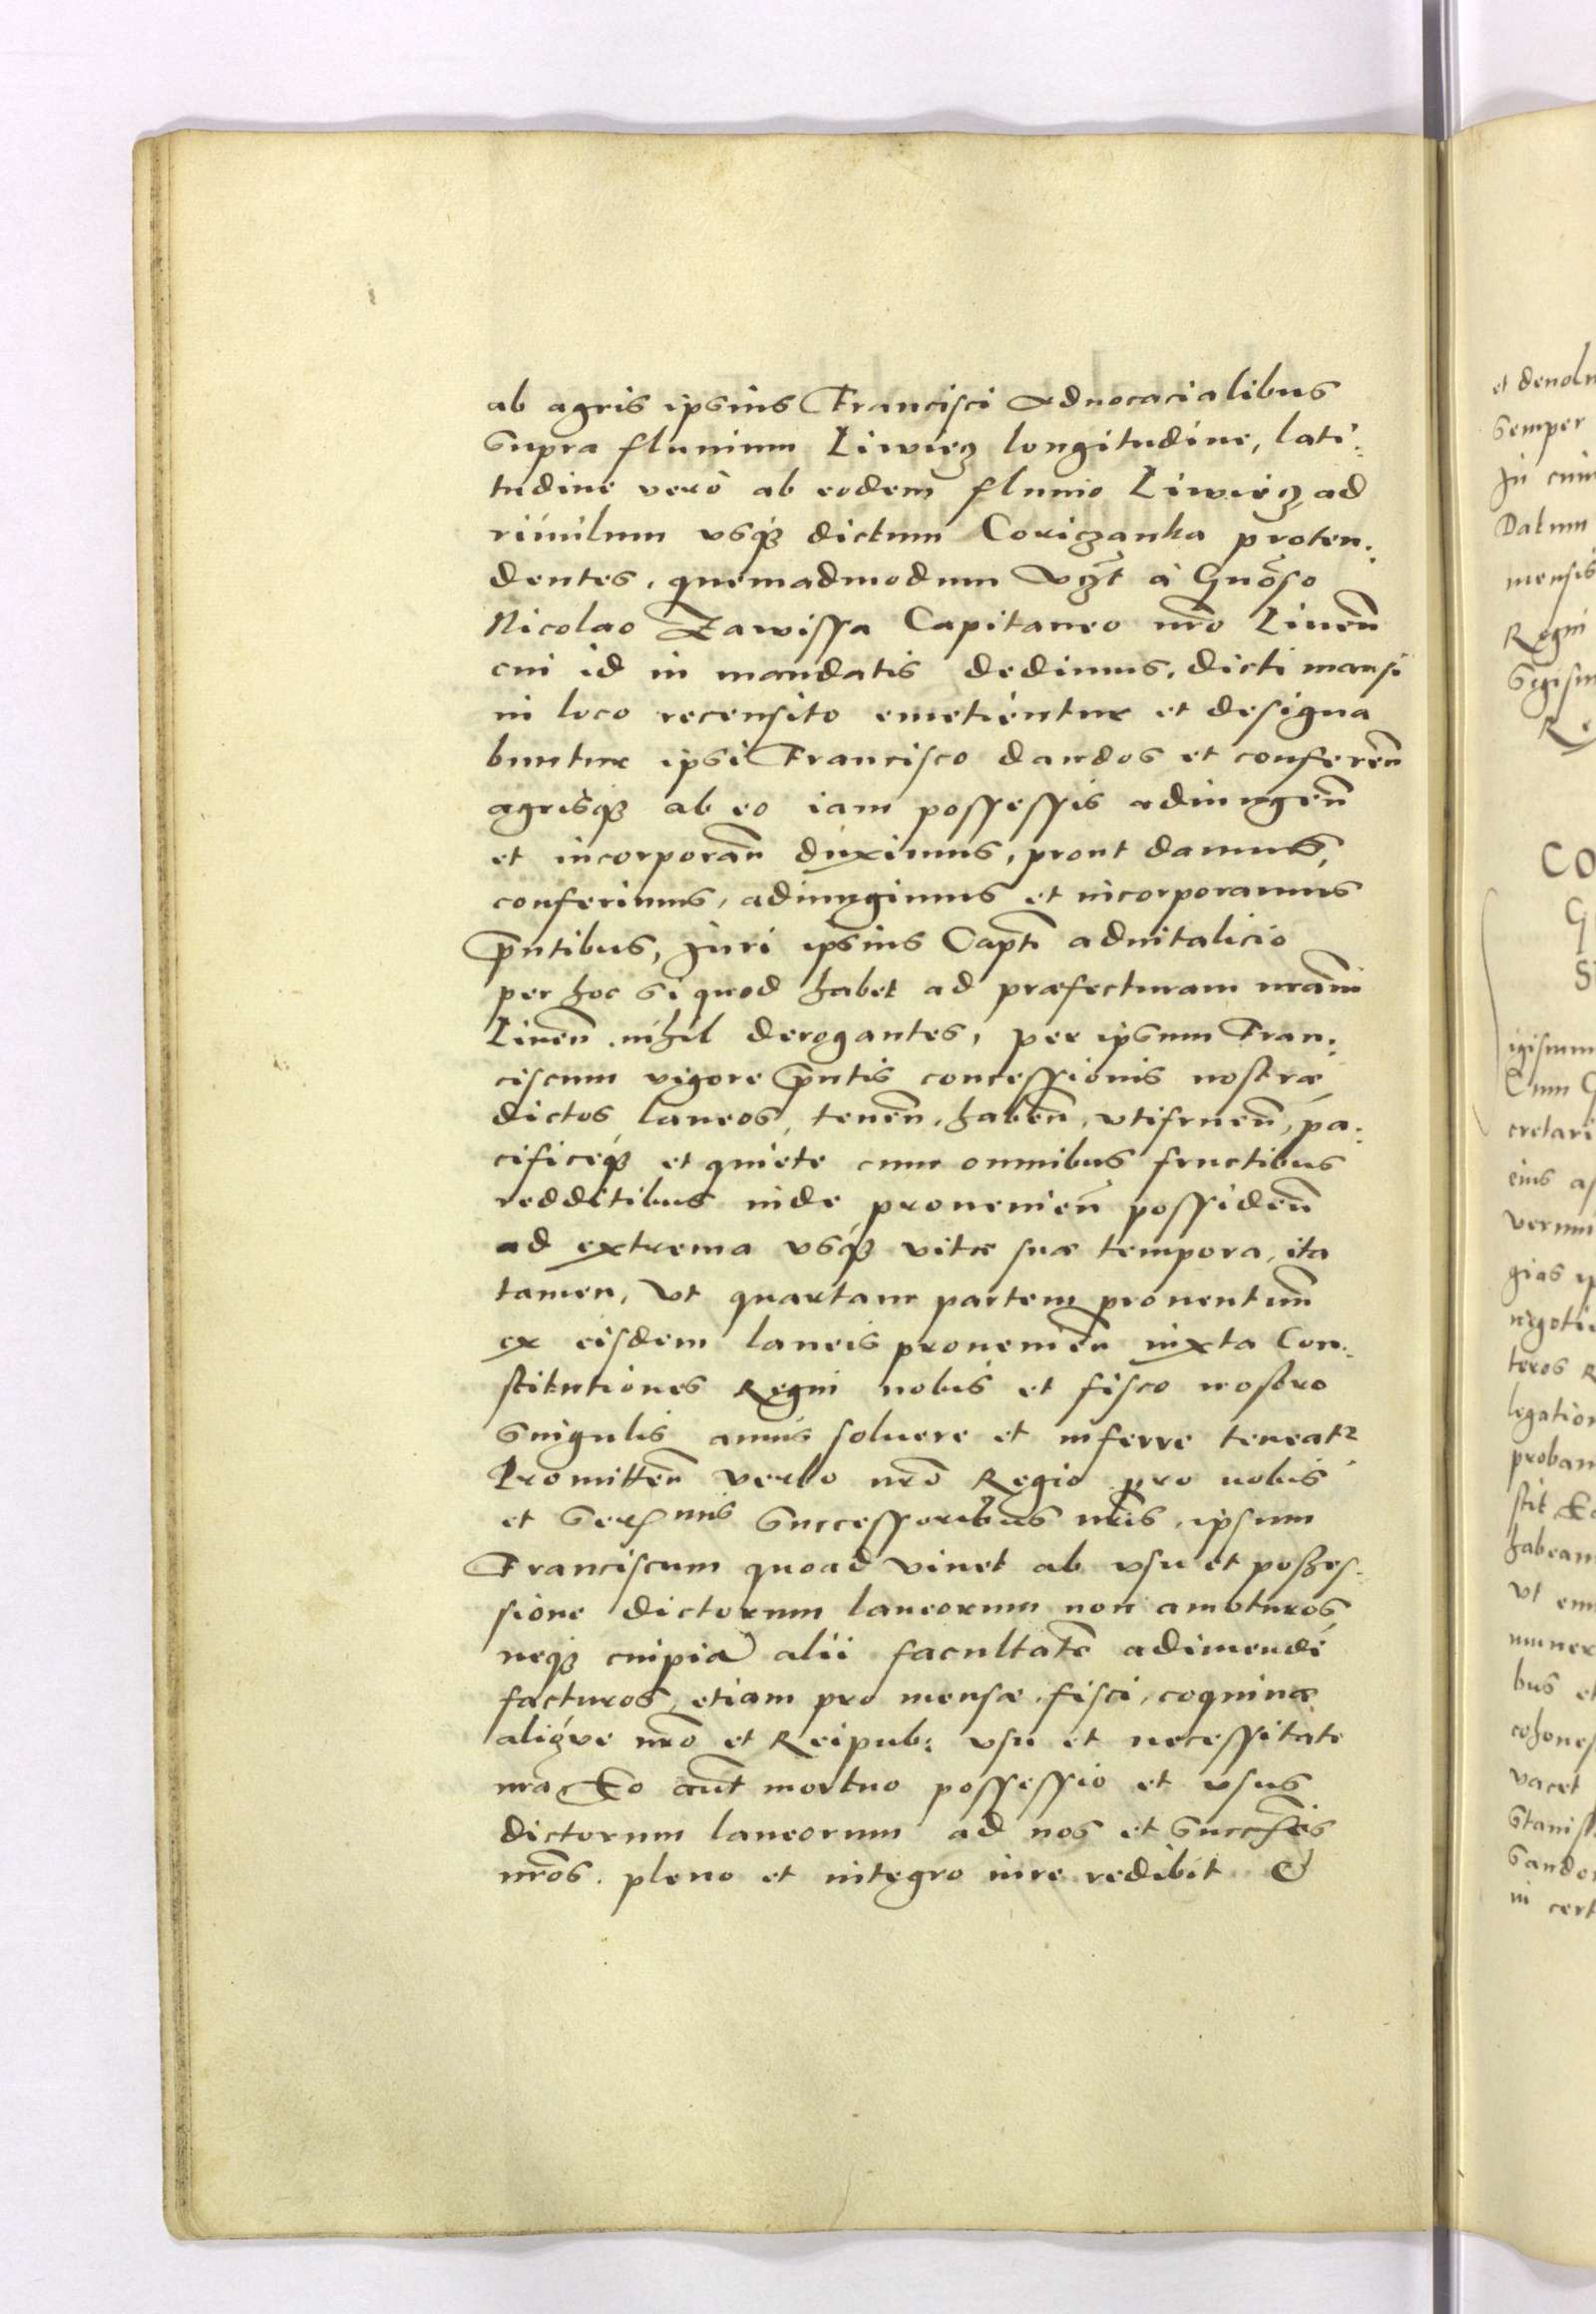 ab agris ipsius Francisci aduocacialibus
supra fluuium Liwiecz longitudine, lati:
tudine verò ab eodem fluuio Liwiecz ad
riuulum vsq3 dictum Coriczanka proten:
dentes, quemadmodum vczt à Gnoso
Nicolao Zawissa Capitaneo nro Liuen
cui id in mandatis dedimus, dicti mansi
in loco recensito emetientur et designa
buntur ipsi Francisco dandos et conferen
agrisq3 ab eo iam possessis adiungen
et incorporan duximus, prout damus,
conferimus, adiungimus et incorporamus
pntibus, Juri ipsius Capti aduitalicio
per hoc si quod habet ad præfecturam nram
Liuen nihil derogantes, per ipsum Fran:
ciscum vigore pntis concessionis nostræ
dictos laneos, tenen, haben, vtifruen, pa:
cificeq3 et quiete cum omnibus fructibus
redditibus inde prouenien possiden
ad extrema vsq3 vitæ suæ tempora, ita
tamen, vt quartam partem prouentuum
ex eisdem laneis prouenien iuxta Con:
stitutiones Regni nobis et fisco nostro
singulis annis soluere et inferre teneatr
Promitten verbo nro Regio pro nobis
et Sermis Successoribus nris, ipsum
Franciscum quoad viuet ab vsu et posses:
sione dictorum laneorum non amoturos
neq3 cuipia alii facultate adimendi
facturos, etiam pro mensæ, fisci, coquinæ
aliqve nro et Reipub: vsu et necessitate
nra Eo aut mortuo possessio et vsus
dictorum laneorum ad nos et succses
nros. pleno et integro iure redibit &
et deuolu
semper
In cuiu
Datum
mensis
Regni
Sigism
Re
CO
G
S
igismu
Cum G
cretari
eius
verum
gias ip
negotie
teros R
legation
proban
stit
habeam
vt
muner
bus et
cohones
vacet
Stanis
Sando
in cert